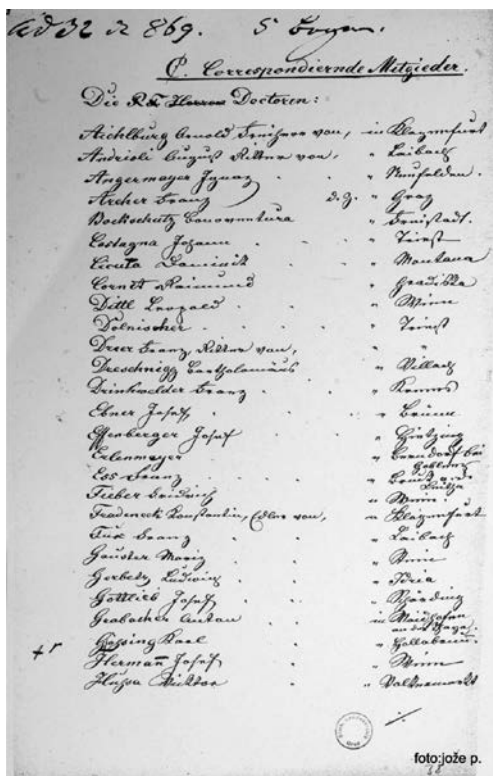 ad 32 ex 869. 5 Bogen.
C. Correspondiernde Mitgieder.
Die P. T. Herren Doctoren:
Aichlburg Arnold Freiherr von, in Klagenfurt
Andrioli August Ritter von, " Laibach
Angermayer Ignaz " Neufelden.
Archer Franz d. Z. " Graz
Bockschatz Bonaventura " Freistadt.
Castagna Johann " Triest
Cicuta Dominik " Montana
Cornet Raimund " Gradiska
Dittl Leopold " Wien
Dolnischer " Triest
Drer Franz, Ritter von, " "
Dreschnigg Bartholomäus " Villach
Drinkwelder Franz " Krems
Ebner Josef " Brünn
Effenberger Josef " Hietzing
Erlenmeyer " Bendorf bei Coblenz
Ess Franz " Bruck a. d. Leitha
Fieber Friedrich " Wien.
Fradeneck Konstantin, Edler von, " Klagenfurt
Fux Franz " Laibach
Gauster Moriz " Wien
Gerbetz Ludwig " Idria
Gottlieb Josef " Schärding
Grabacher Anton in Waidhofen an der Thaya.
+ r Karl " Hollabrunn.
Hermann Josef " Wien
Hussa Viktor " Volkermarkt
foto:jože p.